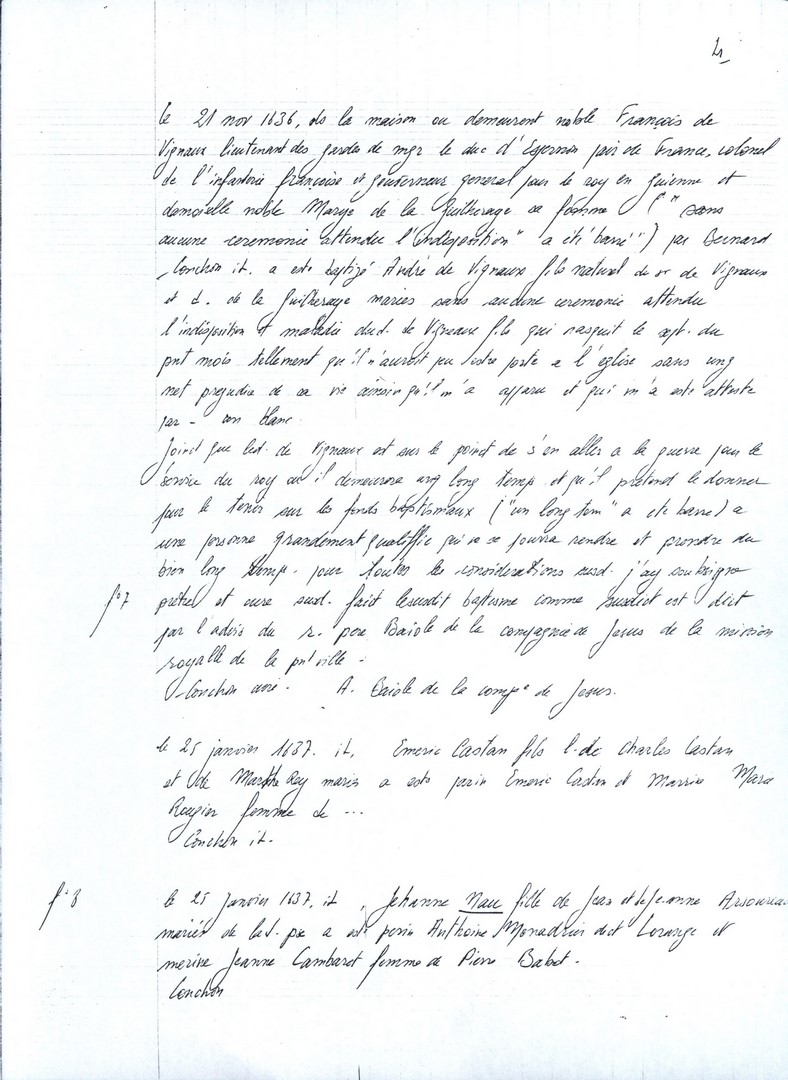 4
le 21 nov 1636, ds la maison ou demeurent noble François de
Vignaux lieutenant des gardes de mgr le duc d'Espernon pair de France, colonel
de l'infanterie françoise et gouverneur general pour le roy en guienne et
damoiselle noble Marye de la Guilheraye sa femme ("sans
aucune ceremonie attendu l'indisposition" a été barré") par Bernard
Conchon it. a este baptizé André de Vignaux fils naturel du sr de Vignaux
et d. de la Guilheraye maries sans aucune ceremonie attendu
l'indisposition et maladie dud. de Vignaux fils qui nasquit le sept. du
pnt mois tellement qu'il n'auroit peu estre porte a l'église sans ung
net prejudice de sa vie ainsin qu'il m'a apparu et qui m'a este atteste
par - un blanc.
Joinct que led. de Vignaux est sur le point de s'en aller a la guerre pour le
service du roy ou il demeurera ung long temps et qu'il pretend le donner
pour le tenir sur les fonds baptismaux ("un long tem" a ete barre) a
une personne grandement qualiffie qui ne se pourra rendre et prendre du
bien long temps. pour toutes les considerations susd. j'ay soubsigne
f° 7 prêtre et cure susd. faict lesusdit baptisme comme susdict est dict
par l'advis du r. pere Baiole de la compagnie de Jesus de la mission
royalle de la pnt ville -
Conchon curé. A. Baiole de la comp° de Jesus.
le 25 janvier 1637. it, Emeric Castan fils l. de Charles Castan
et de Marthe Rey maries a este parin Emeric Castan et Marrine Mara
Rougier femme de ...
Conchon it.
f° 8 le 25 janvier 1637. it, Jehanne Nau fille de Jean et de Jeanne
mariés de lad. pse a esté parin Anthoine Monadrier dict Lorange et
merine Jeanne Cambaret femme de Pierre Babet.
Conchon